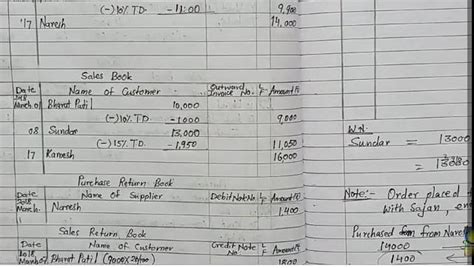 (-) 10% T.D. - 1100 9,900
'17 Naresh 14,000
Sales Book
Date Name of Customer Outward Invoice No. L F Amount(₹)
2018
March 01 Bharat Patil 10,000
(-) 10% T.D. - 1000 9,000
08 Sundar 13,000
(-) 15% T.D. - 1,950 11,050
17 Kamesh 16000
Purchase Return Book
Date Name of Supplier Debit Note No L F Amount(₹)
2018
March Naresh 1,400
Sales Return Book
Date Name of Customer Credit Note No. L F Amount(₹)
2018
March Bharat Patil 1800
W.N.
Sundar = 13000
=
Note:- Order placed
with Sajan,
Purchased from Naresh
14000
1400